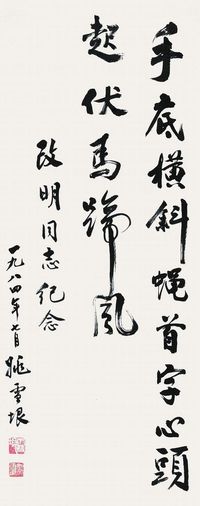 手底横斜蝇首字心頭
起伏馬蹄風
改明同志纪念
一九八四年七月姚雪垠